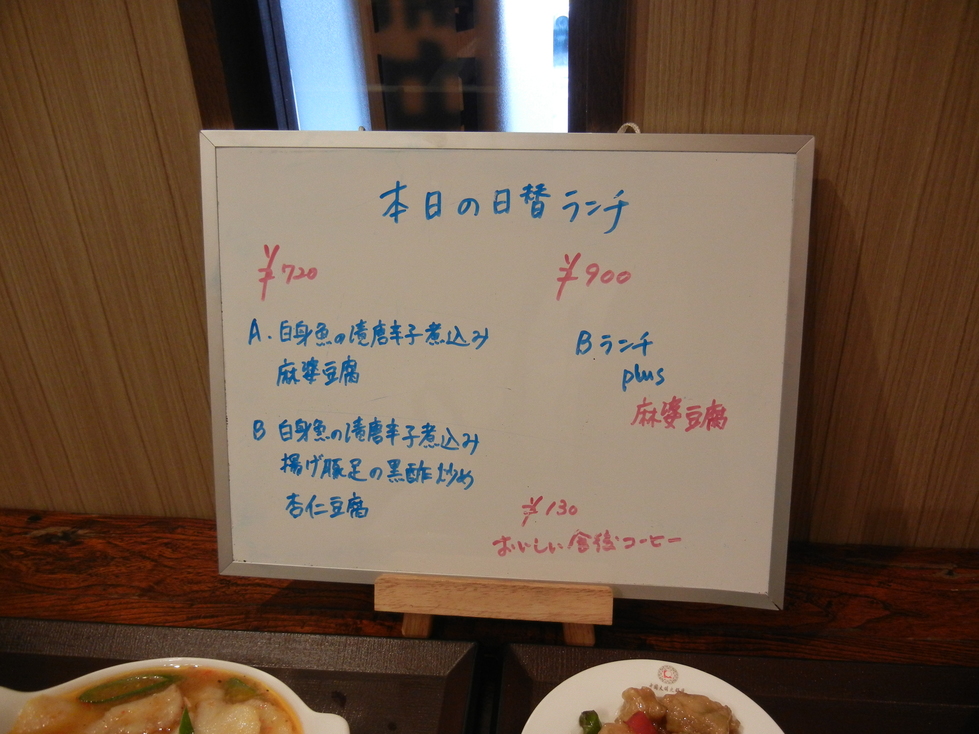 本日の日替ランチ
¥720
A.白身魚の漬唐辛子煮込み
麻婆豆腐
B 白身魚の漬唐辛子煮込み
揚げ豚足の黒酢炒め
杏仁豆腐
¥900
Bランチ
plus
麻婆豆腐
¥130
おいしい食後コーヒー